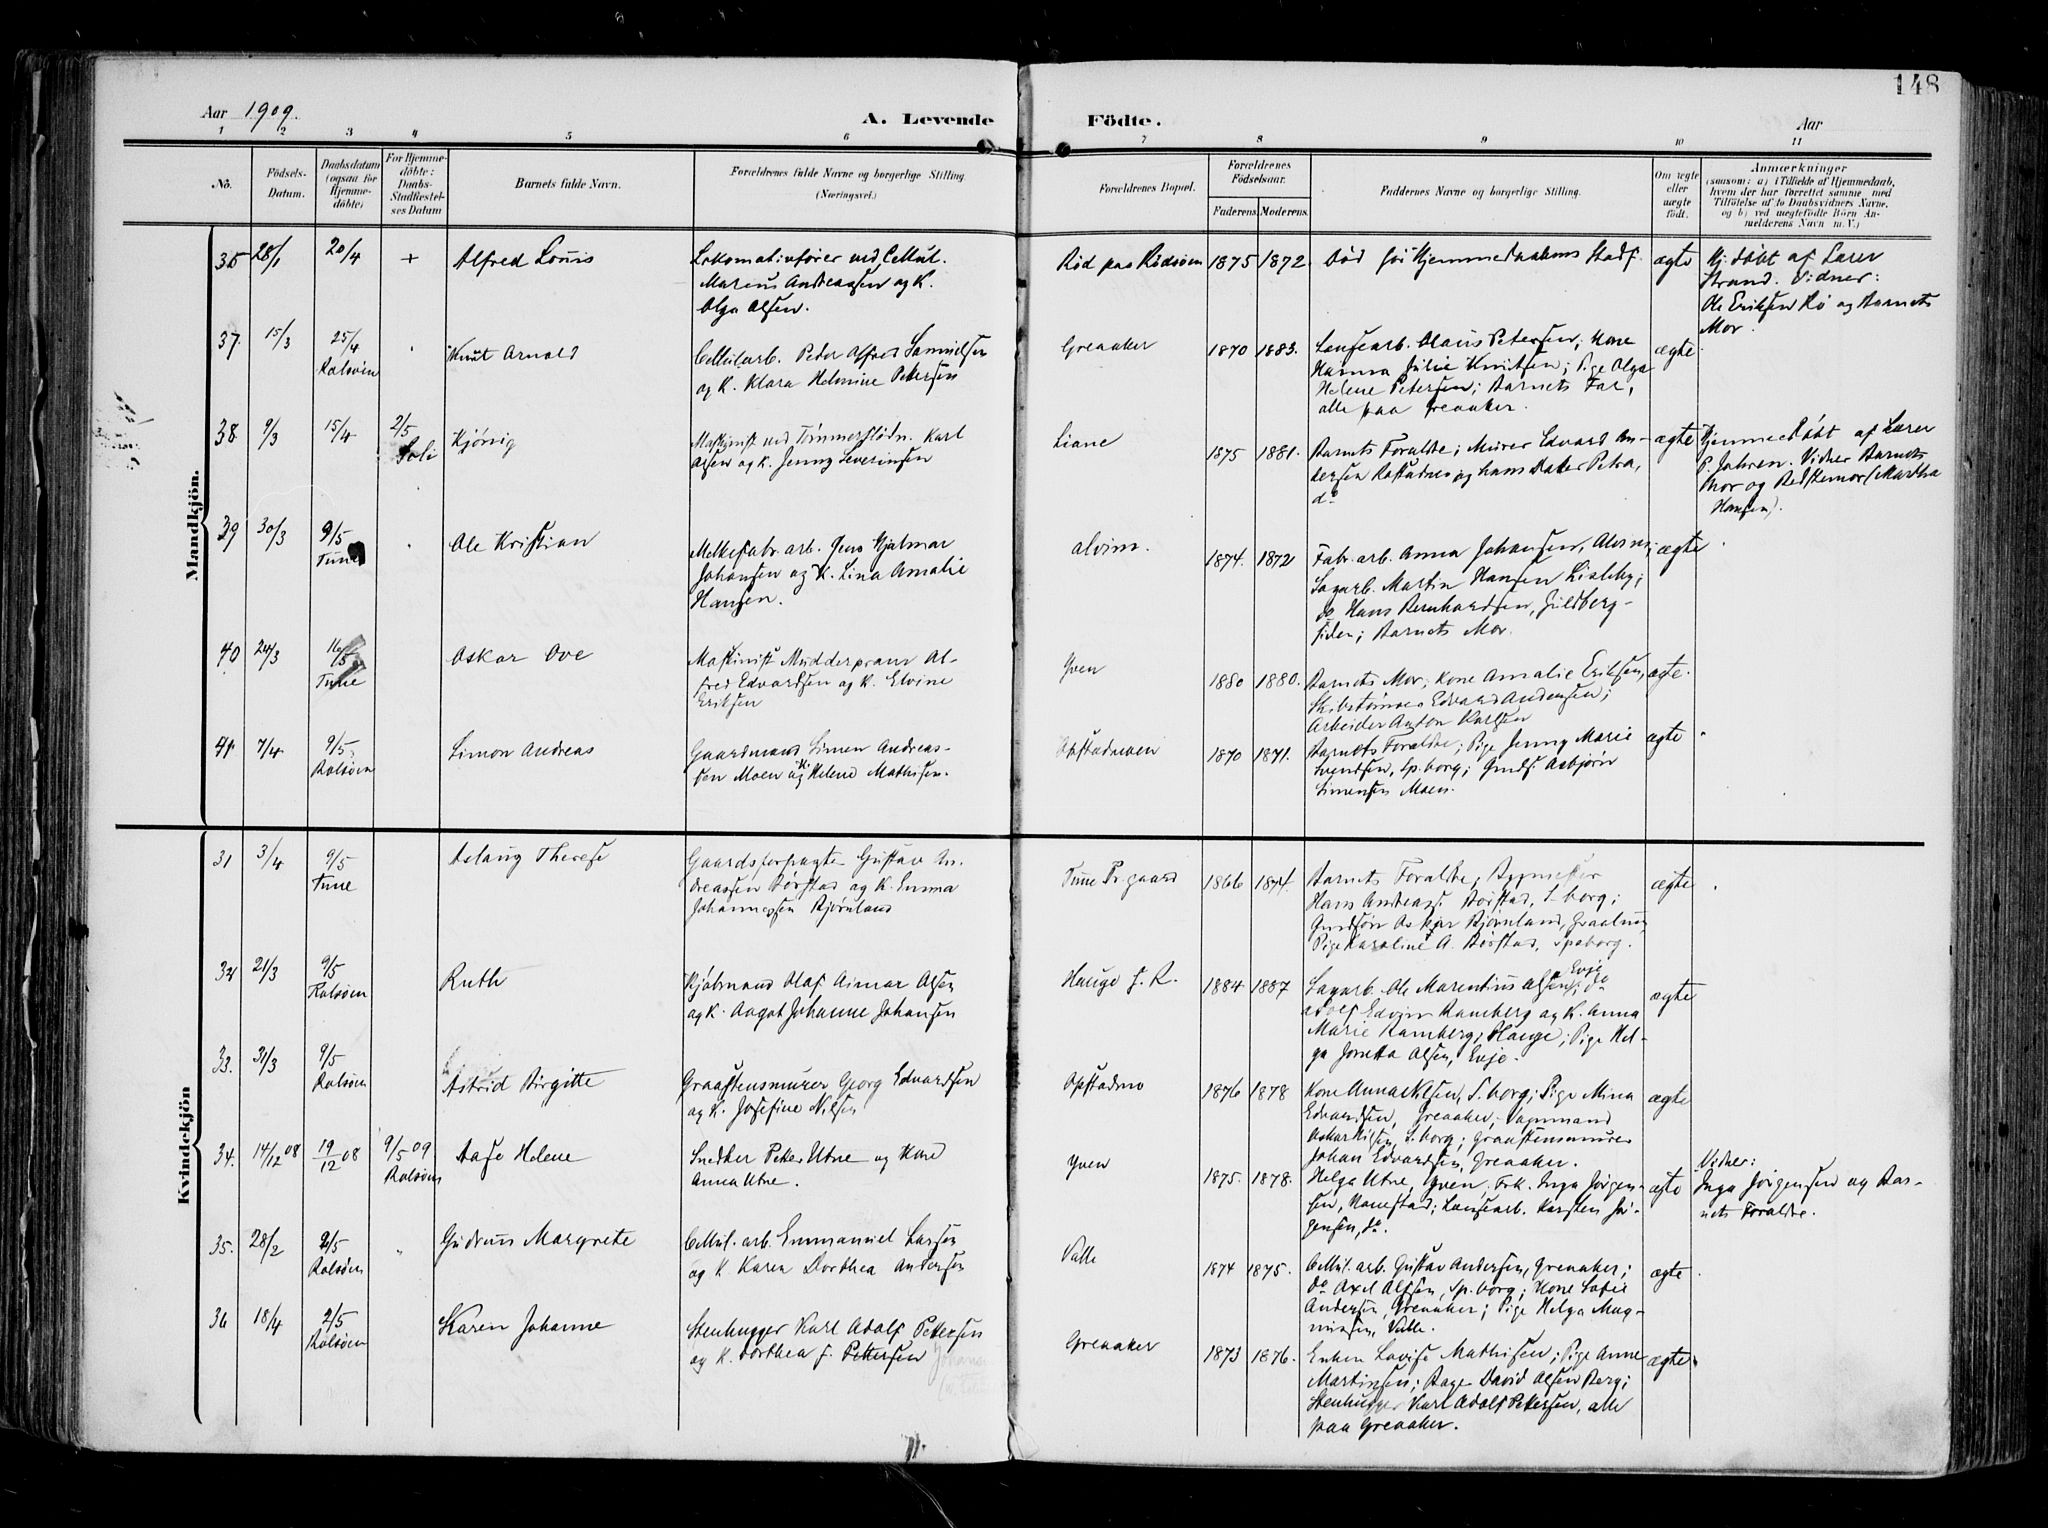 148
Aar 1909.
A. Levende Födte.
Aar
1 2 3 4 5 6 7 8 9 10 11
No.
Födsels-Datum.
Daabsdatum (ogsaa for Hjemmedöbte)
For Hjemmedöbte: Daabs-Stadfæstelses Datum
Barnets fulde Navn.
Forældrenes fulde Navne og borgerlige Stilling (Næringsvei.)
Forældrenes Bopæl.
Forældrenes Födselsaar.
Faderens. Moderens.
Faddernes Navne og borgerlige Stilling.
Om ægte eller uægte födt.
Anmærkninger
(saasom: a) i Tilfælde af Hjemmedaab, hvem der har forrettet samme med Tilföielse af to Daabsvidners Navne, og b) ved uægtefödte Börn Anmelderens Navn m.V.)
Mandkjön.
36 28/1 20/4 + Alfred Louis
Lokomotivfører ved Cellul.
Marius Andreassen og K.
Olga Olsen.
Rød paa Rødsøen 1875 1872.
Død før Hjemmedaabens Stadf. ægte
Hj. døbt af Lærer
Strand. Vidner:
Ole Eriksen Rø og Barnets
Mor.
37. 15/3 25/4 Rolsøen
Knut Arnold
Cellularb. Peder Alfred Samuelsen
og K. Klara Helmine Pettersen
Greaaker 1870 1883.
Lensearb. Olaus Petersen; Kone
Hanna Julie Knutsen; Pige Olga
Helene Petersen; Barnets Far,
alle paa Greaaker.
ægte
38. 9/3 15/4 2/5 Soli
Kjønnig
Maskinist ved Tømmerflødn. Karl
Olsen og K. Jenny Severinsen
Liane 1875 1881.
Barnets Forældre; Murer Edvard Andersen
og hans Datter Petra,
do
ægte
Hjemmedøbt af Lærer
P. Jahren. Vidner Barnets
Mor og Bedstemor (Martha
Hansen).
39 30/3 9/5 Tune
Ole Kristian
Melkefabr. arb. Jens Hjalmar
Johansen og K. Lina Amalie
Hansen.
Alvim. 1874. 1872
Fabr. arb. Anna Johansen, Alvim;
Sagarb. Martin Hansen Lisleby;
do Hans Bernhardsen, Gildberg-
siden; Barnets Mor.
ægte
40 24/3 16/5 Tune
Oskar Ove
Maskinist Mudderpram Al-
fred Edvardsen og K. Elvine
Eriksen
Yven 1880 1880.
Barnets Mor; Kone Amalie Eriksen,
Skibstømmer Edvard Andersen;
Arbeider Anton Karlsen
ægte.
41. 7/4 9/5 Rolsøen
Simon Andreas
Gaardmand Simen Andreas-
sen Moen og K. Helene Mathisen.
Opstadmoen 1870 1871.
Barnets Forældre; Pige Jenny Marie
Svendsen, Sp.borg; Gaards. Asbjørn
Simensen Moen.
ægte
Kvindekjön
31 3/4 9/5 Tune
Aslaug Therese
Gaardsforpagter Gustav An-
dreassen Børstad og K. Emma
Johannessen Bjørnland
Tune Pr.gaard 1866 1874.
Barnets Forældre; Bygmester
Hans Andreas. Børstad, S-borg;
Gaardsøn Oskar Bjørnland, Graalum
Pige Karoline A. Børstad, Spsborg.
ægte
32 21/3 9/5 Rolsøen
Ruth
Kjøbmand Olaf Aimar Olsen
og K. Aagot Johanne Johansen
Hauge f. R. 1884 1887
Sagarb. Ole Marentius Olsen, Evje; do
Adolf Edvin Ramberg og K. Anna
Marie Ramberg, Hauge; Pige Hel-
ga Josetta Olsen, Evje.
ægte
33. 31/3 9/5 Rolsøen
Astrid Birgitte
Graastensmurer Georg Edvardsen
og K. Josefine Nilsen
Opstadmo 1876 1878
Kone Anna Nilsen, S.borg; Pige Mina
Edvardsen, Greaaker; Vognmand
Oskar Nilsen, S.borg; Graastensmurer
Johan Edvardsen, Greaaker.
ægte
34. 14/12 08 19/12 08 9/5 09 Rolsøen
Aase Helene
Snedker Petter Utne og Kone
Anna Utne.
Yven 1875. 1878.
Helga Utne, Yven; Frk. Inga Jørgen-
sen, Hanestad; Lensearb. Karsten Jør-
gensen, do.
ægte
Vidner:
Inga Jørgensen og Bar-
nets Forældre.
35. 28/2 2/5 Rolsøen "
Gudrun Margrete
Cellul. arb. Emmanuel Larsen
og K. Karen Dorthea Andersen
Valle 1874 1875.
Cellul. arb. Gustav Andersen, Greaaker;
do Axel Olsen, Sp.borg; Kone Sofie
Andersen, Greaaker; Pige Helga Mag-
nussen, Valle.
ægte
36 18/4 2/5 Rolsøen
Karen Johanne
Stenhugger Karl Adolf Pettersen
og K. Dorthea f. Pettersen
Greaaker 1873 1876.
Enken Lovise Mathisen; Pige Anne
Martinsen; Bager David Olsen Berg;
Stenhugger Karl Adolf Pettersen, alle
paa Greaaker.
ægte